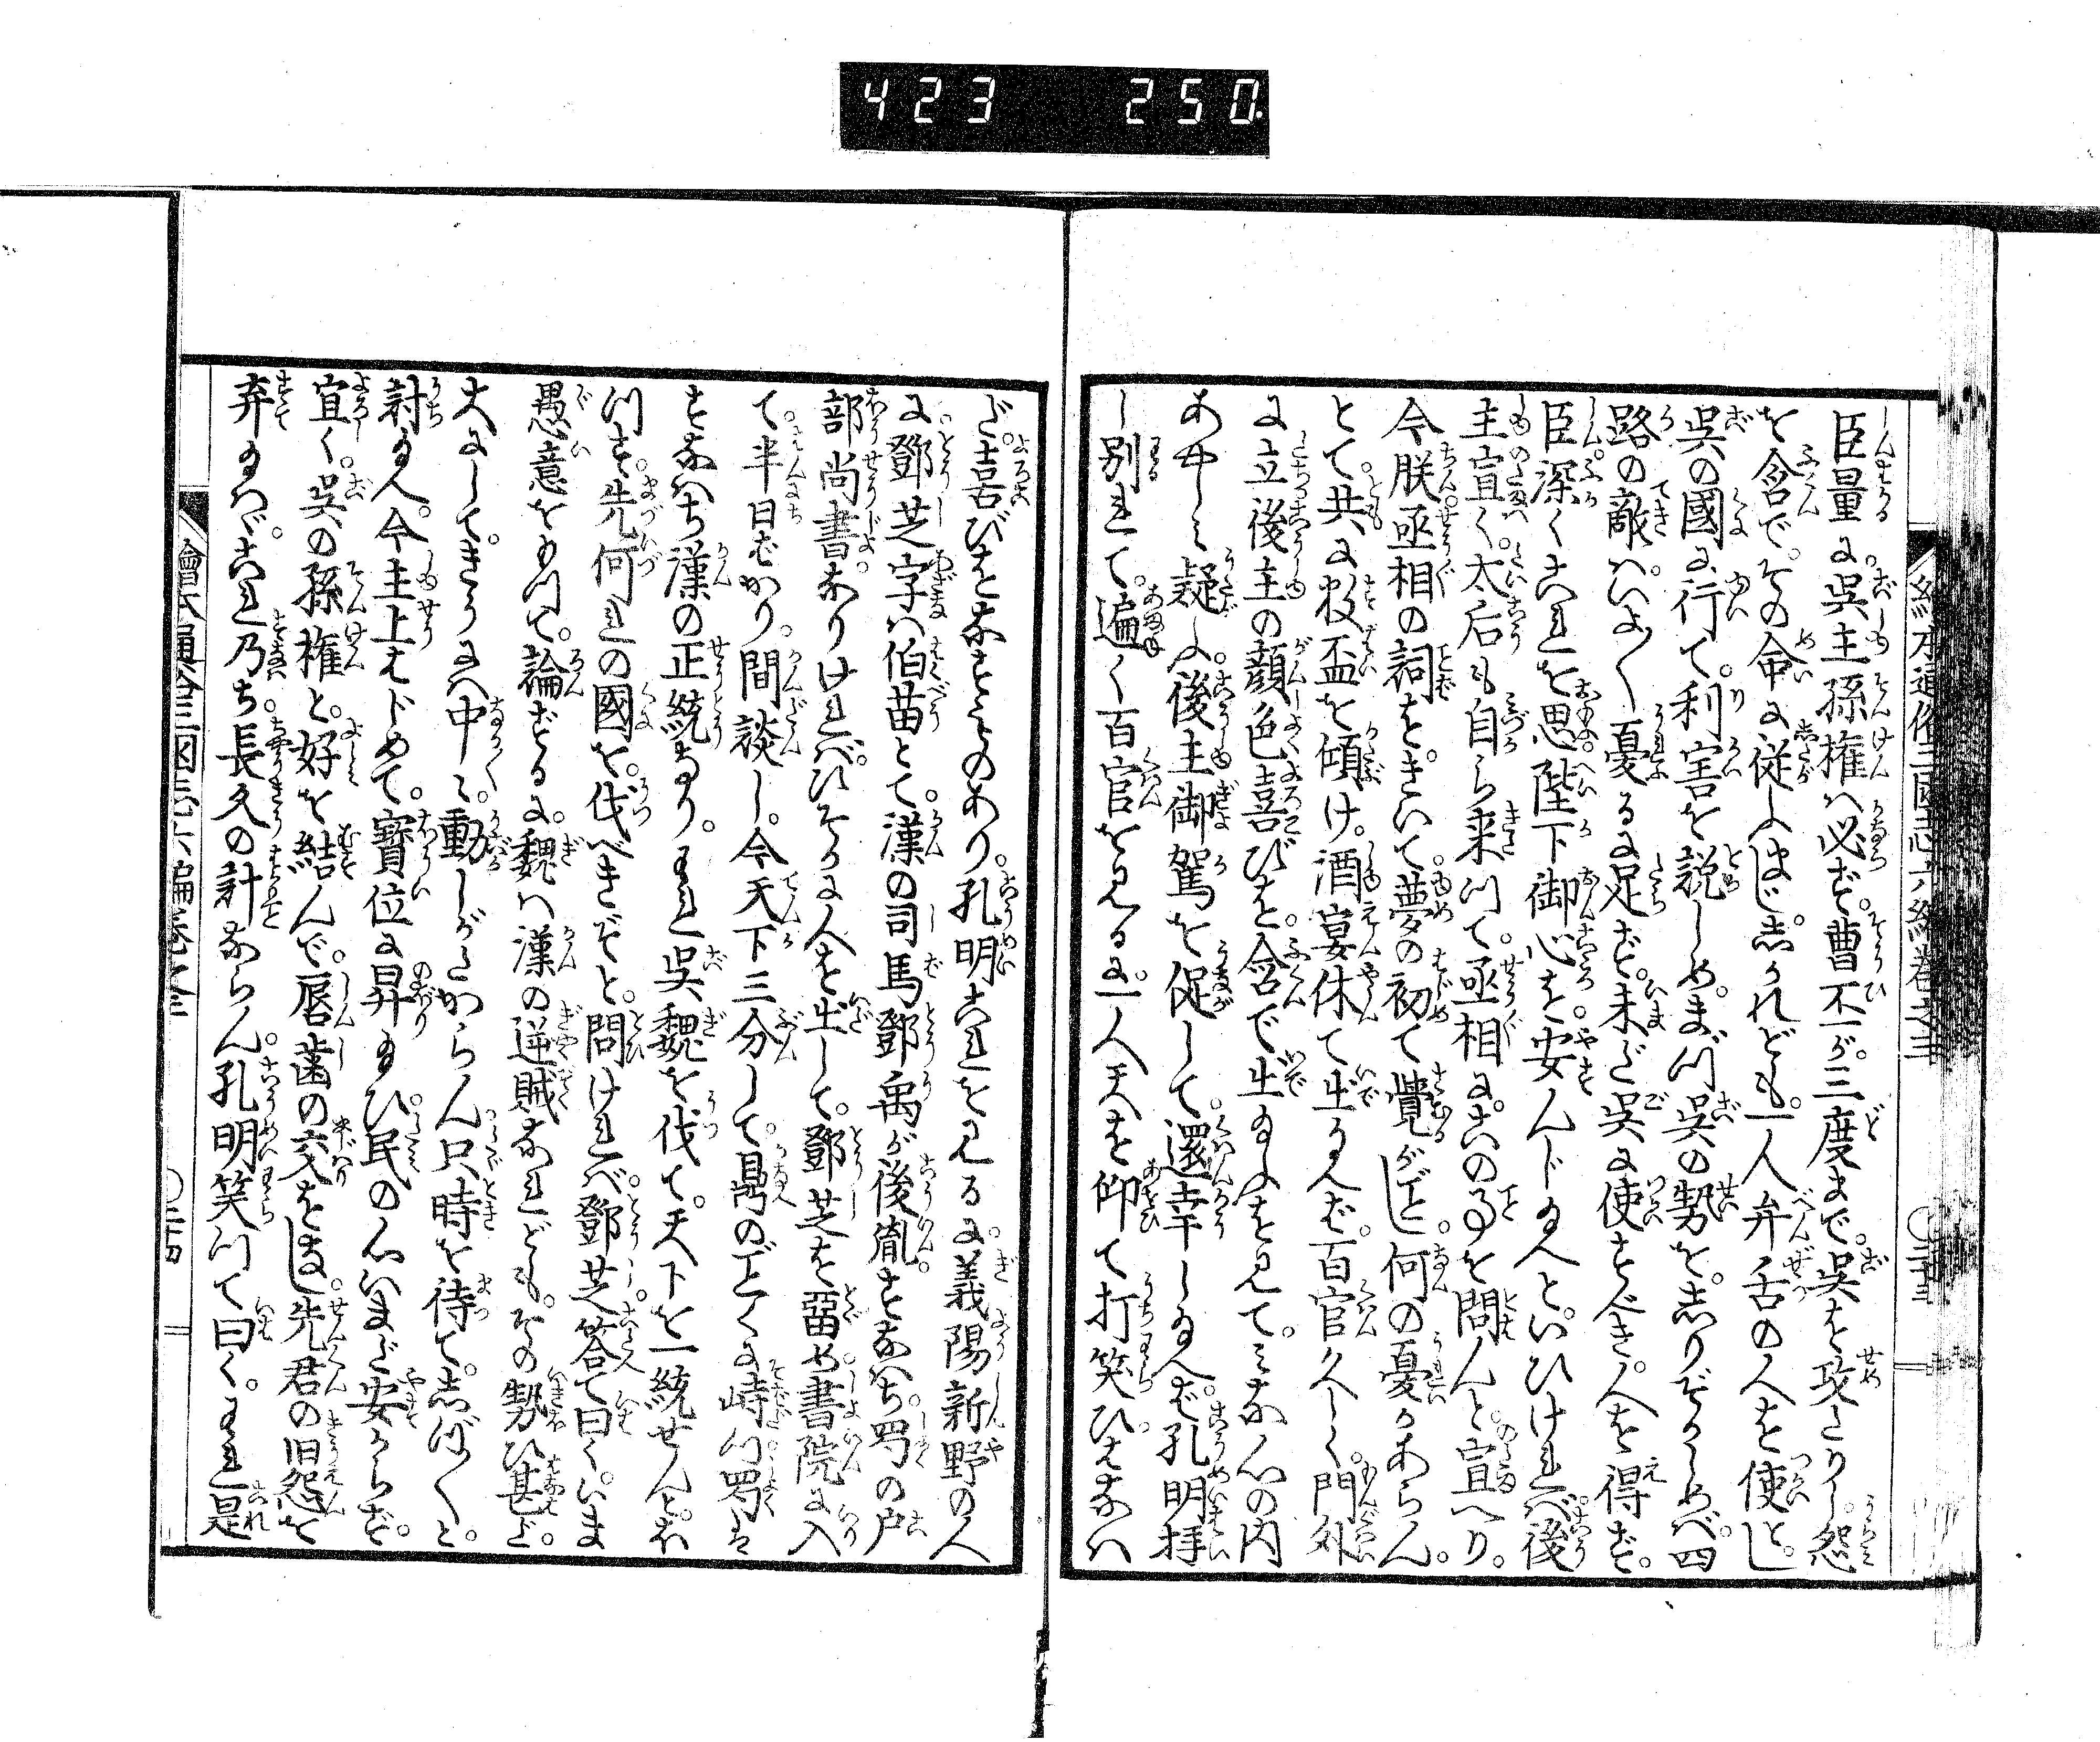 423 250.
繪本通俗三國志六編卷之三 〇二十三
臣量るに呉主孫權ハ必ず曹丕が三度まで呉を攻たりし怨
を含でその命に従ふまじ志かれども一人弁舌の人を使とし
呉の國に行て利害を説しめまづ呉の勢を志りぞかしめバ四
路の敵ハいよ〱憂るに足ず未だ呉に使すべき人を得ず
臣深くこれを思ふ陛下御心を安んじ玉へといひけれバ後
主宣く太后も自ら来つて丞相にこの事を問んと宣へり
今朕丞相の詞をきいて夢の初て覺るがごとし何の憂かあらん
とて共に数盃を傾け酒宴休て出玉へば百官久しく門外
に立後主の顔色喜びを含で出玉ふを見てみな心の内
あやしみ疑ふ後主御駕を促して還幸し玉へば孔明拝
し別れて遍く百官を見るに一人天を仰て打笑ひはなハ
だ喜びをなすものあり孔明これを見るに義陽新野の人
に鄧芝字ハ伯苗とて漢の司馬鄧禹が後胤すなハち蜀の戸
部尚書なりけれバひそかに人を出して鄧芝を畱め書院に入
て半日ばかり間談し今天下三分して鼎のごとくに峙つ蜀は
すなハち漢の正統なりわれ呉魏を伐て天下を一統せんとほ
つす先何れの國を伐べきぞと問けれバ鄧芝答て曰くいま
愚意をもつて論ずるに魏ハ漢の逆賊なれどもその勢ひ甚ど
大にしてきうにハ中〱動しがたからん只時を待て志ばらくと
討玉へ今主上はじめて寳位に昇玉ひ民の心いまだ安からず
宣く呉の孫權と好を結んで唇歯の交をなし先君の旧怨を
弃玉ハゞこれ乃ち長久の計ならん孔明笑つて曰くわれ是
繪本通俗三国志六編卷之三 〇二十四